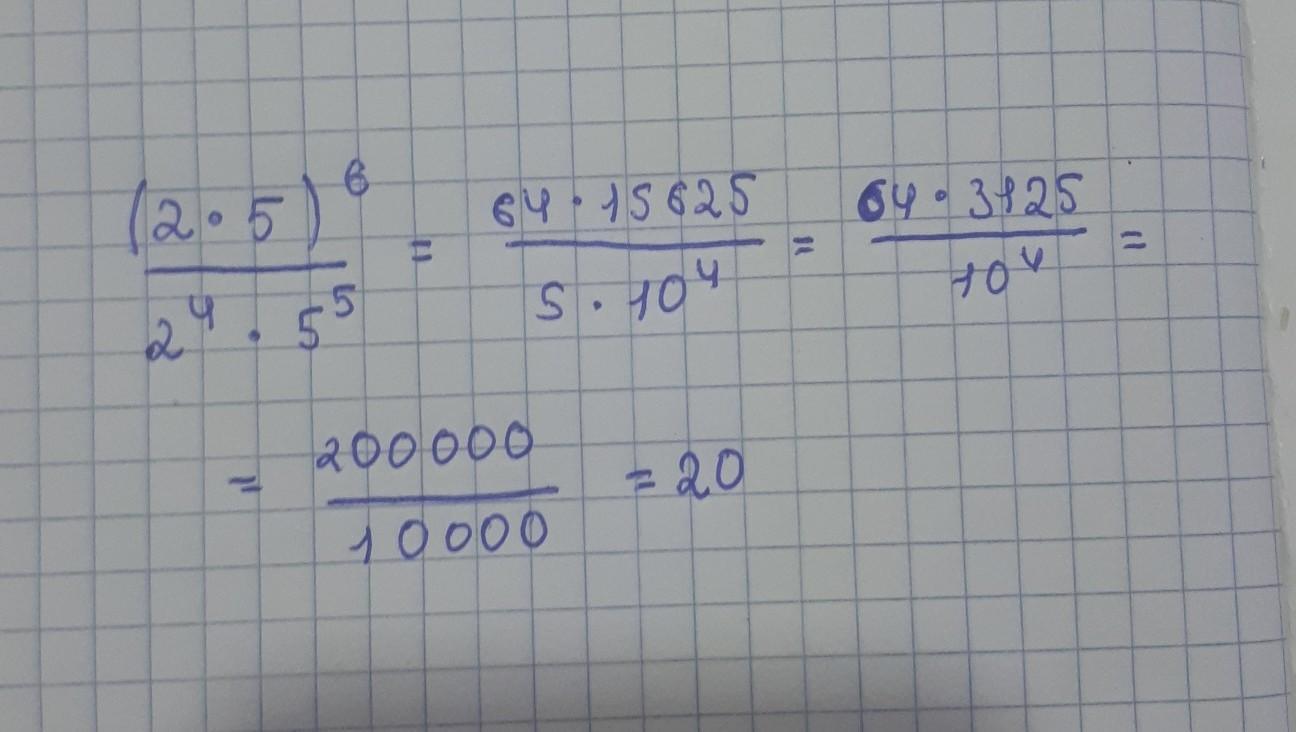 (2 · 5)^6 / 2^4 · 5^5 = 64 · 15625 / 5 · 10^4 = 64 · 3125 / 10^4 =
= 200000 / 10000 = 20